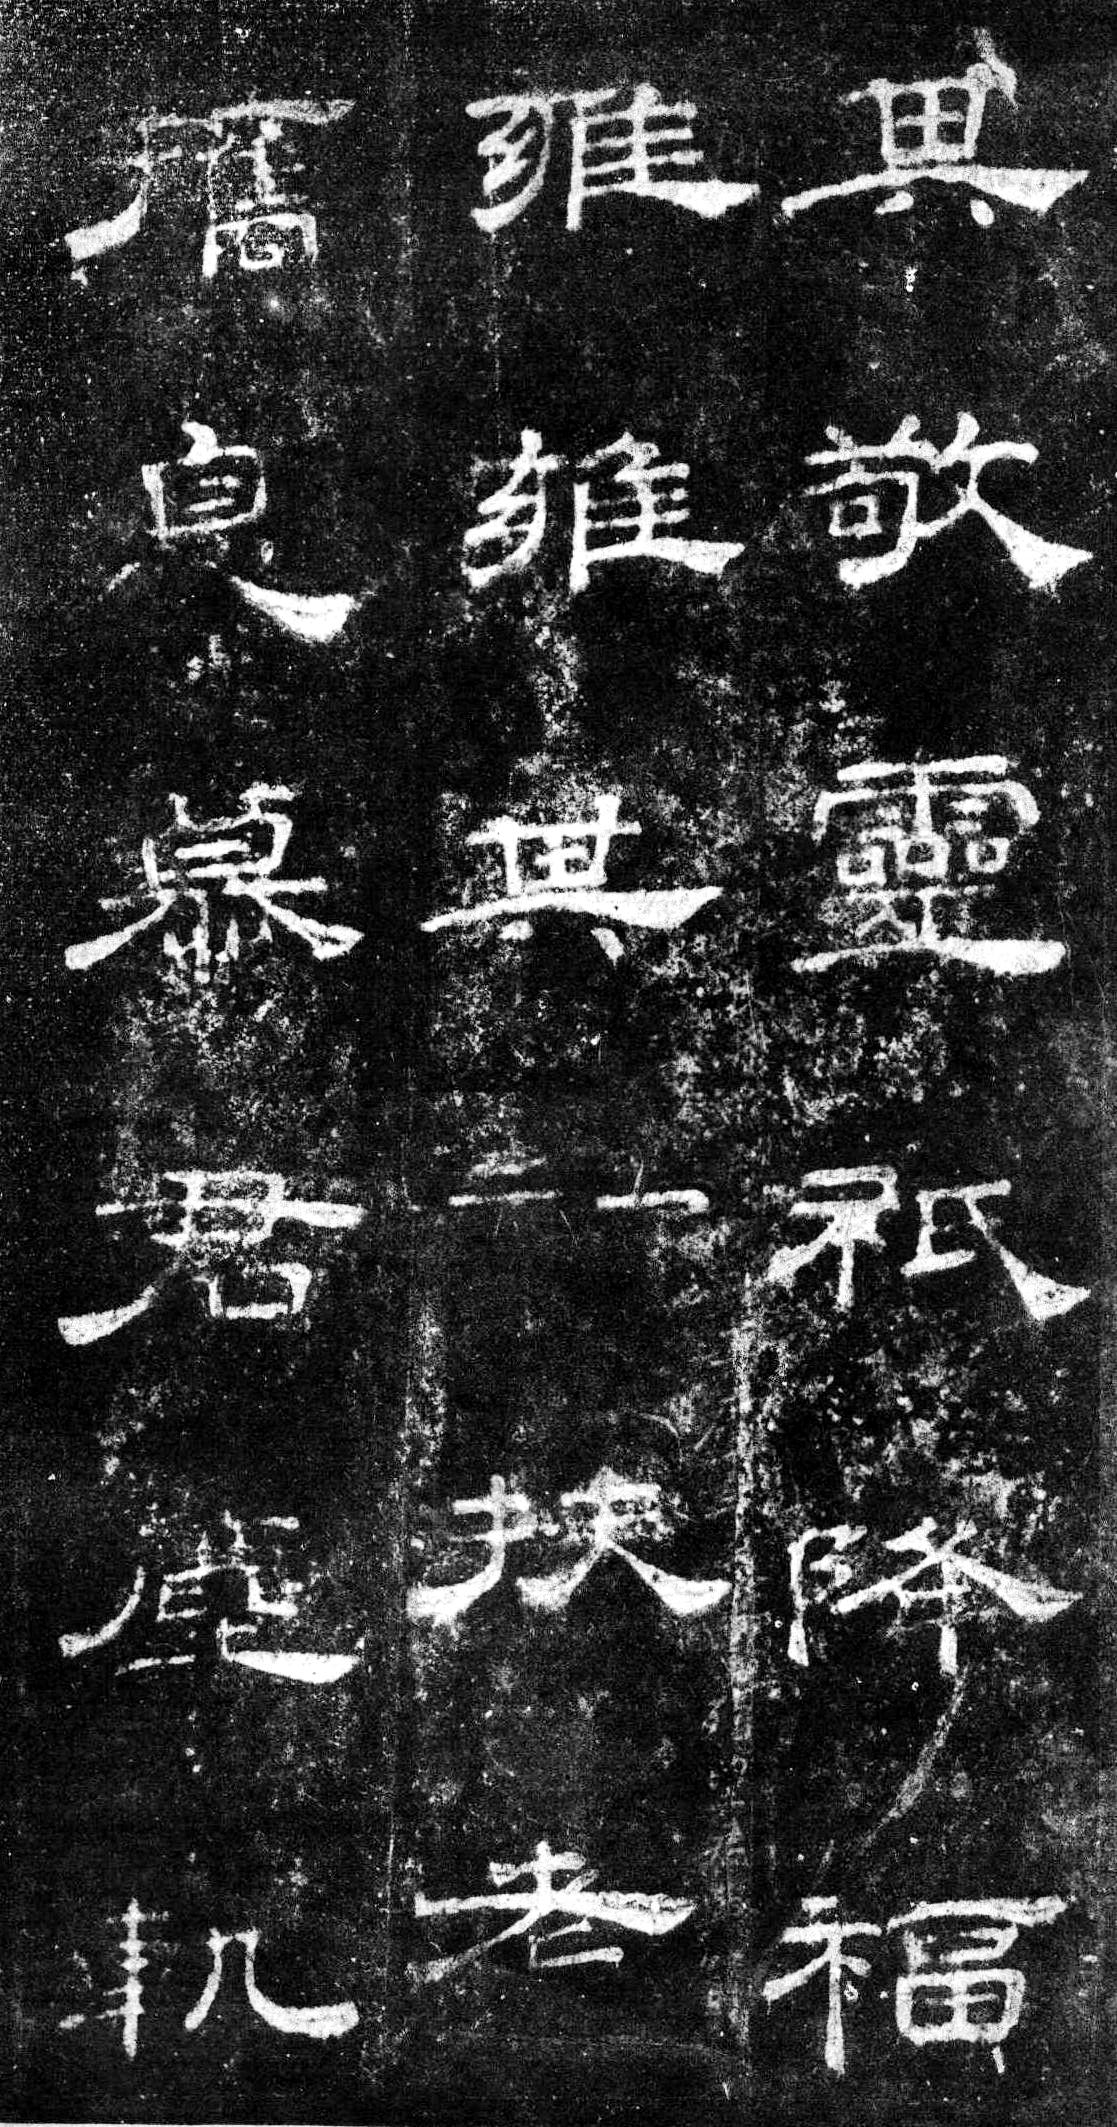 異敬靈祇降福
雍雍其扶老
攜息慕君塵軌